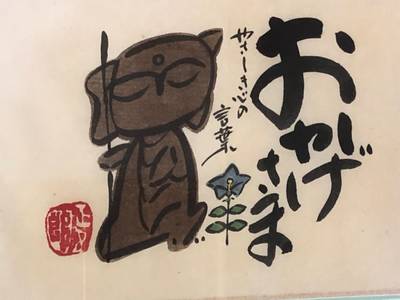 おかげさま
やさしき心の
言葉